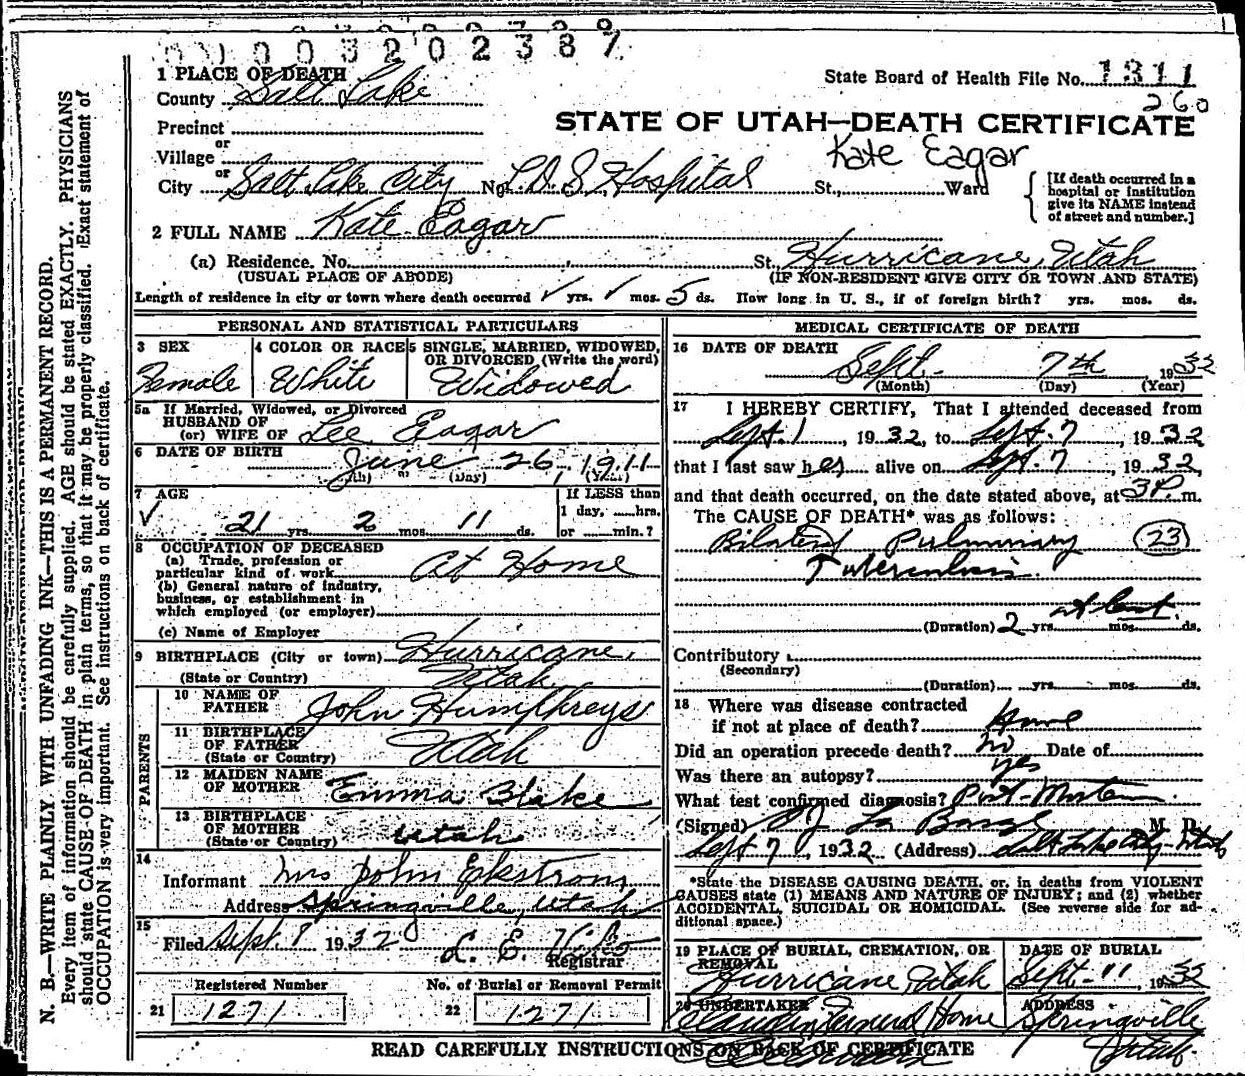 003202387
1 PLACE OF DEATH
County Salt Lake
State Board of Health File No. 1311
260
Precinct
or
Village
or
STATE OF UTAH—DEATH CERTIFICATE
Kate Eagar
City Salt Lake City No. L.D.S. Hospital St., Ward
[If death occurred in a hospital or institution give its NAME instead of street and number.]
2 FULL NAME Kate Eagar
(a) Residence. No. St. Hurricane, Utah
(USUAL PLACE OF ABODE) (IF NON-RESIDENT GIVE CITY OR TOWN AND STATE)
Length of residence in city or town where death occurred ✓ yrs. ✓ mos. 5 ds. How long in U. S., if of foreign birth? yrs. mos. ds.
PERSONAL AND STATISTICAL PARTICULARS
3 SEX
Female
4 COLOR OR RACE
White
5 SINGLE, MARRIED, WIDOWED, OR DIVORCED (Write the word)
Widowed
5a If Married, Widowed, or Divorced
HUSBAND OF
(or) WIFE OF Lee Eagar
6 DATE OF BIRTH June 26, 1911
(Day)
7 AGE
✓ 21 yrs. 2 mos. 11 ds.
If LESS than
1 day, hrs.
or min.?
8 OCCUPATION OF DECEASED
(a) Trade, profession or
particular kind of work At Home
(b) General nature of industry,
business, or establishment in
which employed (or employer)
(c) Name of Employer
9 BIRTHPLACE (City or town) Hurricane,
(State or Country) Utah
PARENTS
10 NAME OF FATHER John Humphreys
11 BIRTHPLACE OF FATHER (State or Country) Utah
12 MAIDEN NAME OF MOTHER Emma Blake
13 BIRTHPLACE OF MOTHER (State or Country) Utah
14
Informant Mrs John Ekstrom
Address Springville, Utah
15
Filed Sept. 8 1932 L. E.
Registrar
Registered Number No. of Burial or Removal Permit
21 1271 22 1271
MEDICAL CERTIFICATE OF DEATH
16 DATE OF DEATH
Sept. 7th 1932
(Month) (Day) (Year)
17 I HEREBY CERTIFY, That I attended deceased from
Sept. 1, 1932, to Sept. 7, 1932
that I last saw her alive on Sept. 7, 1932,
and that death occurred, on the date stated above, at 3P m.
The CAUSE OF DEATH* was as follows:
Bilateral Pulmonary (23)
Tuberculosis.
at least
(Duration) 2 yrs. mos. ds.
Contributory
(Secondary)
(Duration) yrs. mos. ds.
18 Where was disease contracted
if not at place of death? Home
Did an operation precede death? no Date of
Was there an autopsy? yes
What test confirmed diagnosis? Post-Mortem
(Signed) M. D.
Sept 7, 1932 (Address) Salt Lake City-Utah
*State the DISEASE CAUSING DEATH, or, in deaths from VIOLENT
CAUSES state (1) MEANS AND NATURE OF INJURY; and (2) whether
ACCIDENTAL, SUICIDAL OR HOMICIDAL. (See reverse side for additional space.)
19 PLACE OF BURIAL, CREMATION, OR REMOVAL
Hurricane, Utah
DATE OF BURIAL
Sept. 11 1932
20 UNDERTAKER
Funeral Home
ADDRESS
Springville
Utah.
READ CAREFULLY INSTRUCTIONS ON BACK OF CERTIFICATE
N. B.—WRITE PLAINLY WITH UNFADING INK—THIS IS A PERMANENT RECORD.
Every item of information should be carefully supplied. AGE should be stated EXACTLY. PHYSICIANS
should state CAUSE OF DEATH in plain terms, so that it may be properly classified. Exact statement of
OCCUPATION is very important. See instructions on back of certificate.